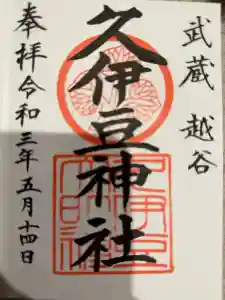 武蔵 越谷
久伊豆神社
奉拝 令和三年五月十四日